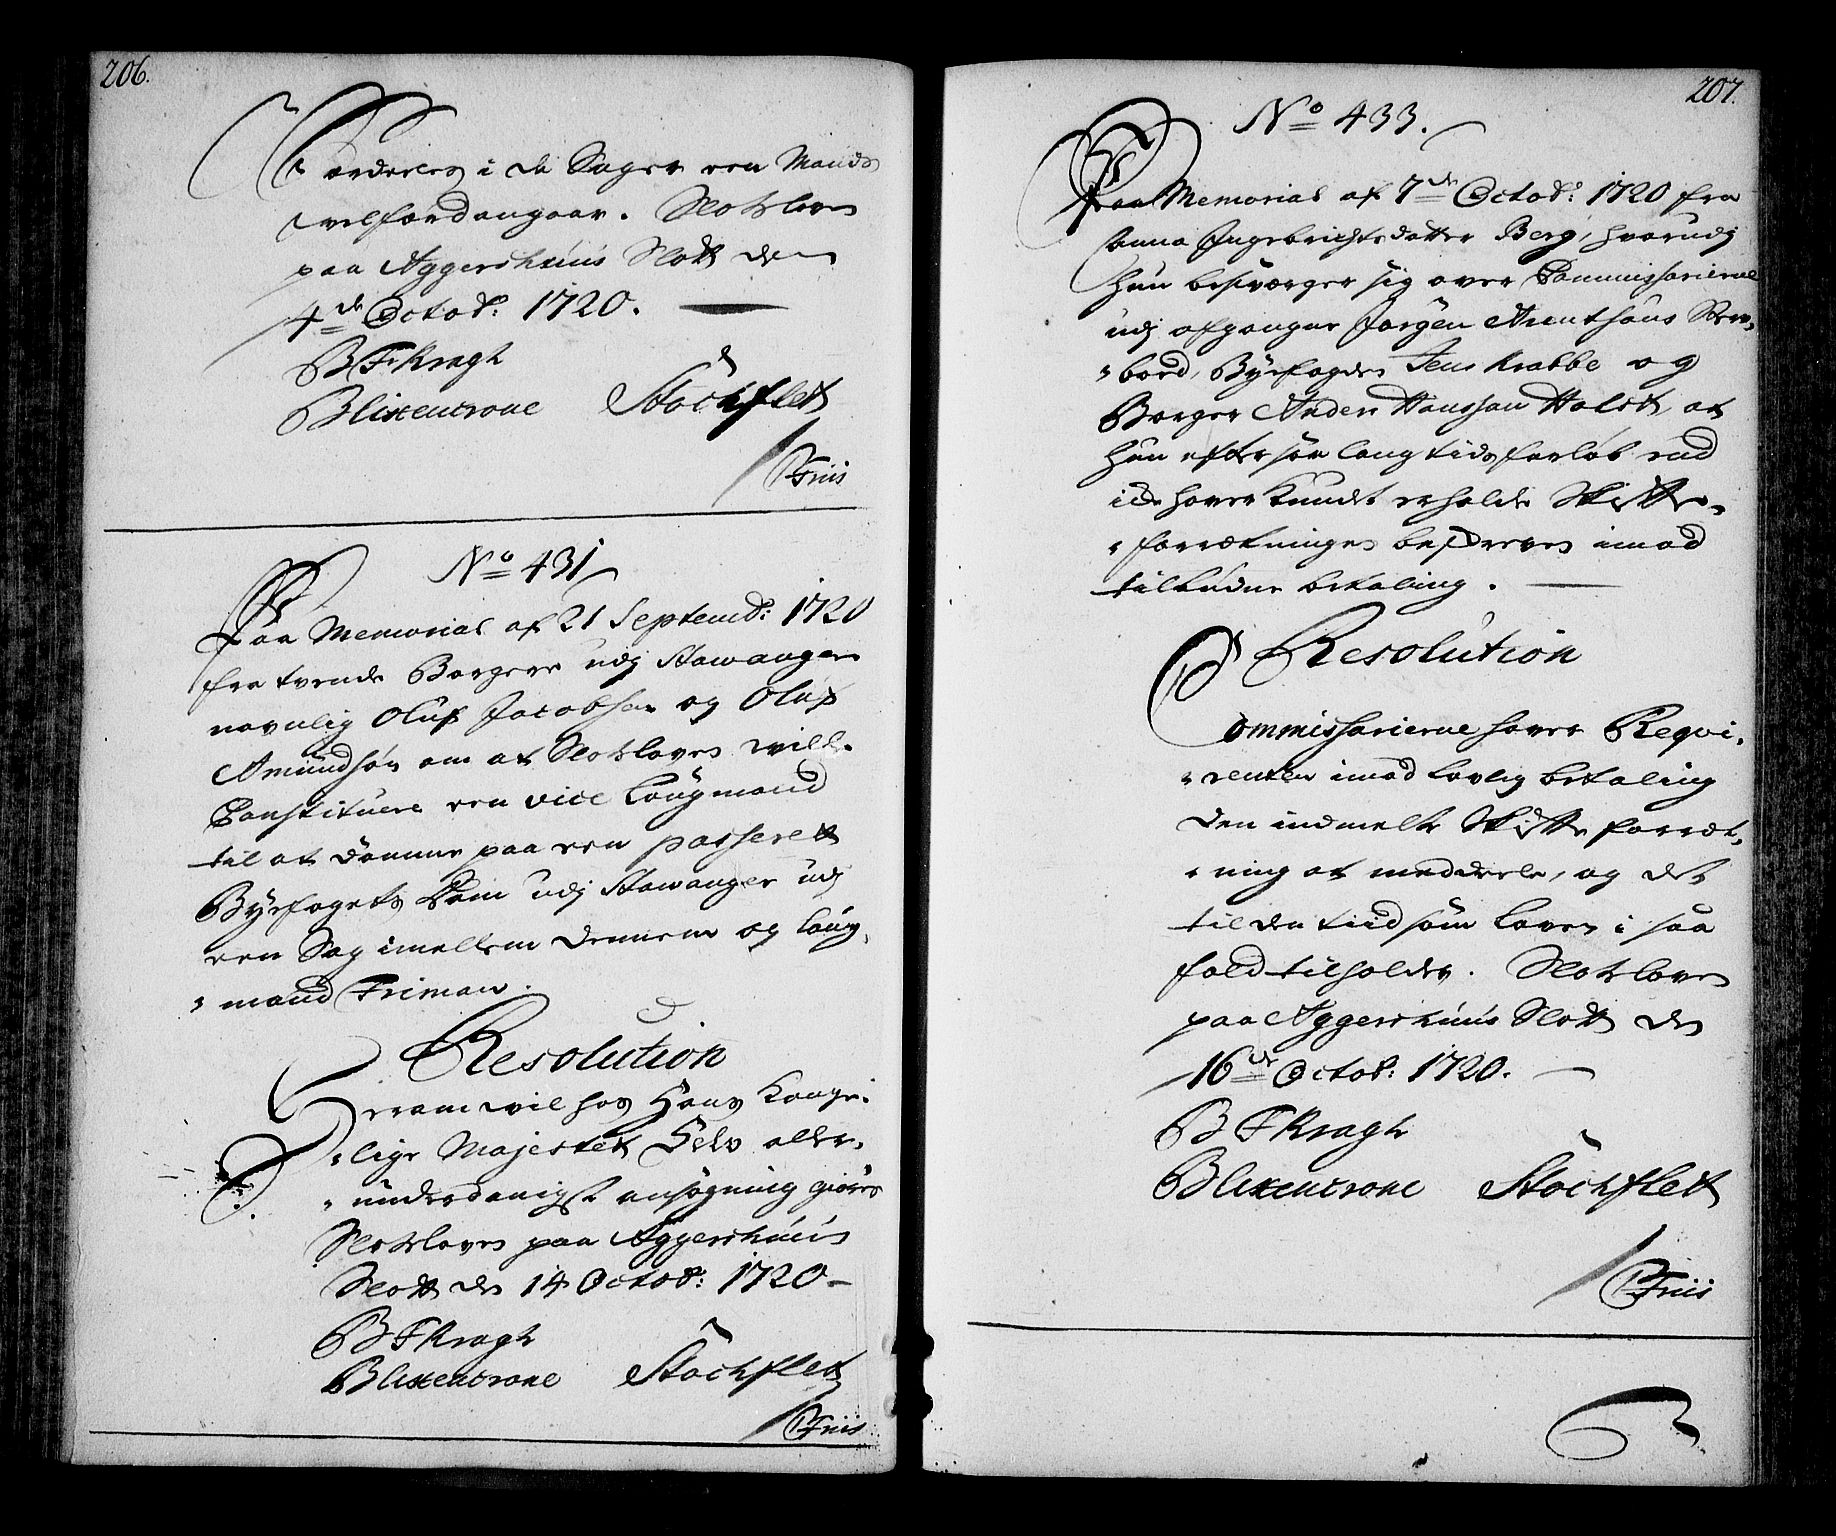 206.
vorderes i de Sager een Mands
velferd angaar. Slotslovens
paa Aggershuus Slott den
4de Octob: 1720.
B F Kragh
Blixencrone Stochflet
/ PFriis
No 431
Paa Memorial af 21 Septemb: 1720
fra tvende Borgere udj Stawanger
navnlig Oluf Jacobsen og Oluf
Amundsøn om at Slotsloven wille
Constituere een vice Laugmand
til at dømme paa een passerett
Byefogets Dom udj Stawanger udj
een Sag imellem dennem og Laug-
mand Friman.
Resolution
Herom wil hos Hans Konge-
lige Majestet Selv aller-
underdanigst ansøgning giøres
Slotsloven paa Aggershuus
Slott den 14 Octob: 1720
B F Kragh
Blixencrone Stochflet
/ PFriis
207.
No 433.
Paa Memorial af 7de Octob: 1720 fra
Anna Ingebrichtsdatter Berg, hvorudj
Hun besværger sig over Commissarierne
udj afgangne Jørgen Arenthsøns Sterv-
bord, Byefogden Jens Krabbe og
Borger Anders Hanssøn Holst, at
Hun efter saa lang tids forløb end
icke hover kundet erholde Skifte-
forretningen beskreven imod
tilbuden betaling.
Resolution
Commissarierne hover Reqvi-
renten imod lovlig betaling
den indmelte Skifte forret-
ning at meddeele, og det
til den tiid som Loven i saa
fald tilholder. Slotsloven
paa Aggershuus Slott den
16de Octob: 1720.
B F Kragh
Blixencrone Stochflet
/ PFriis